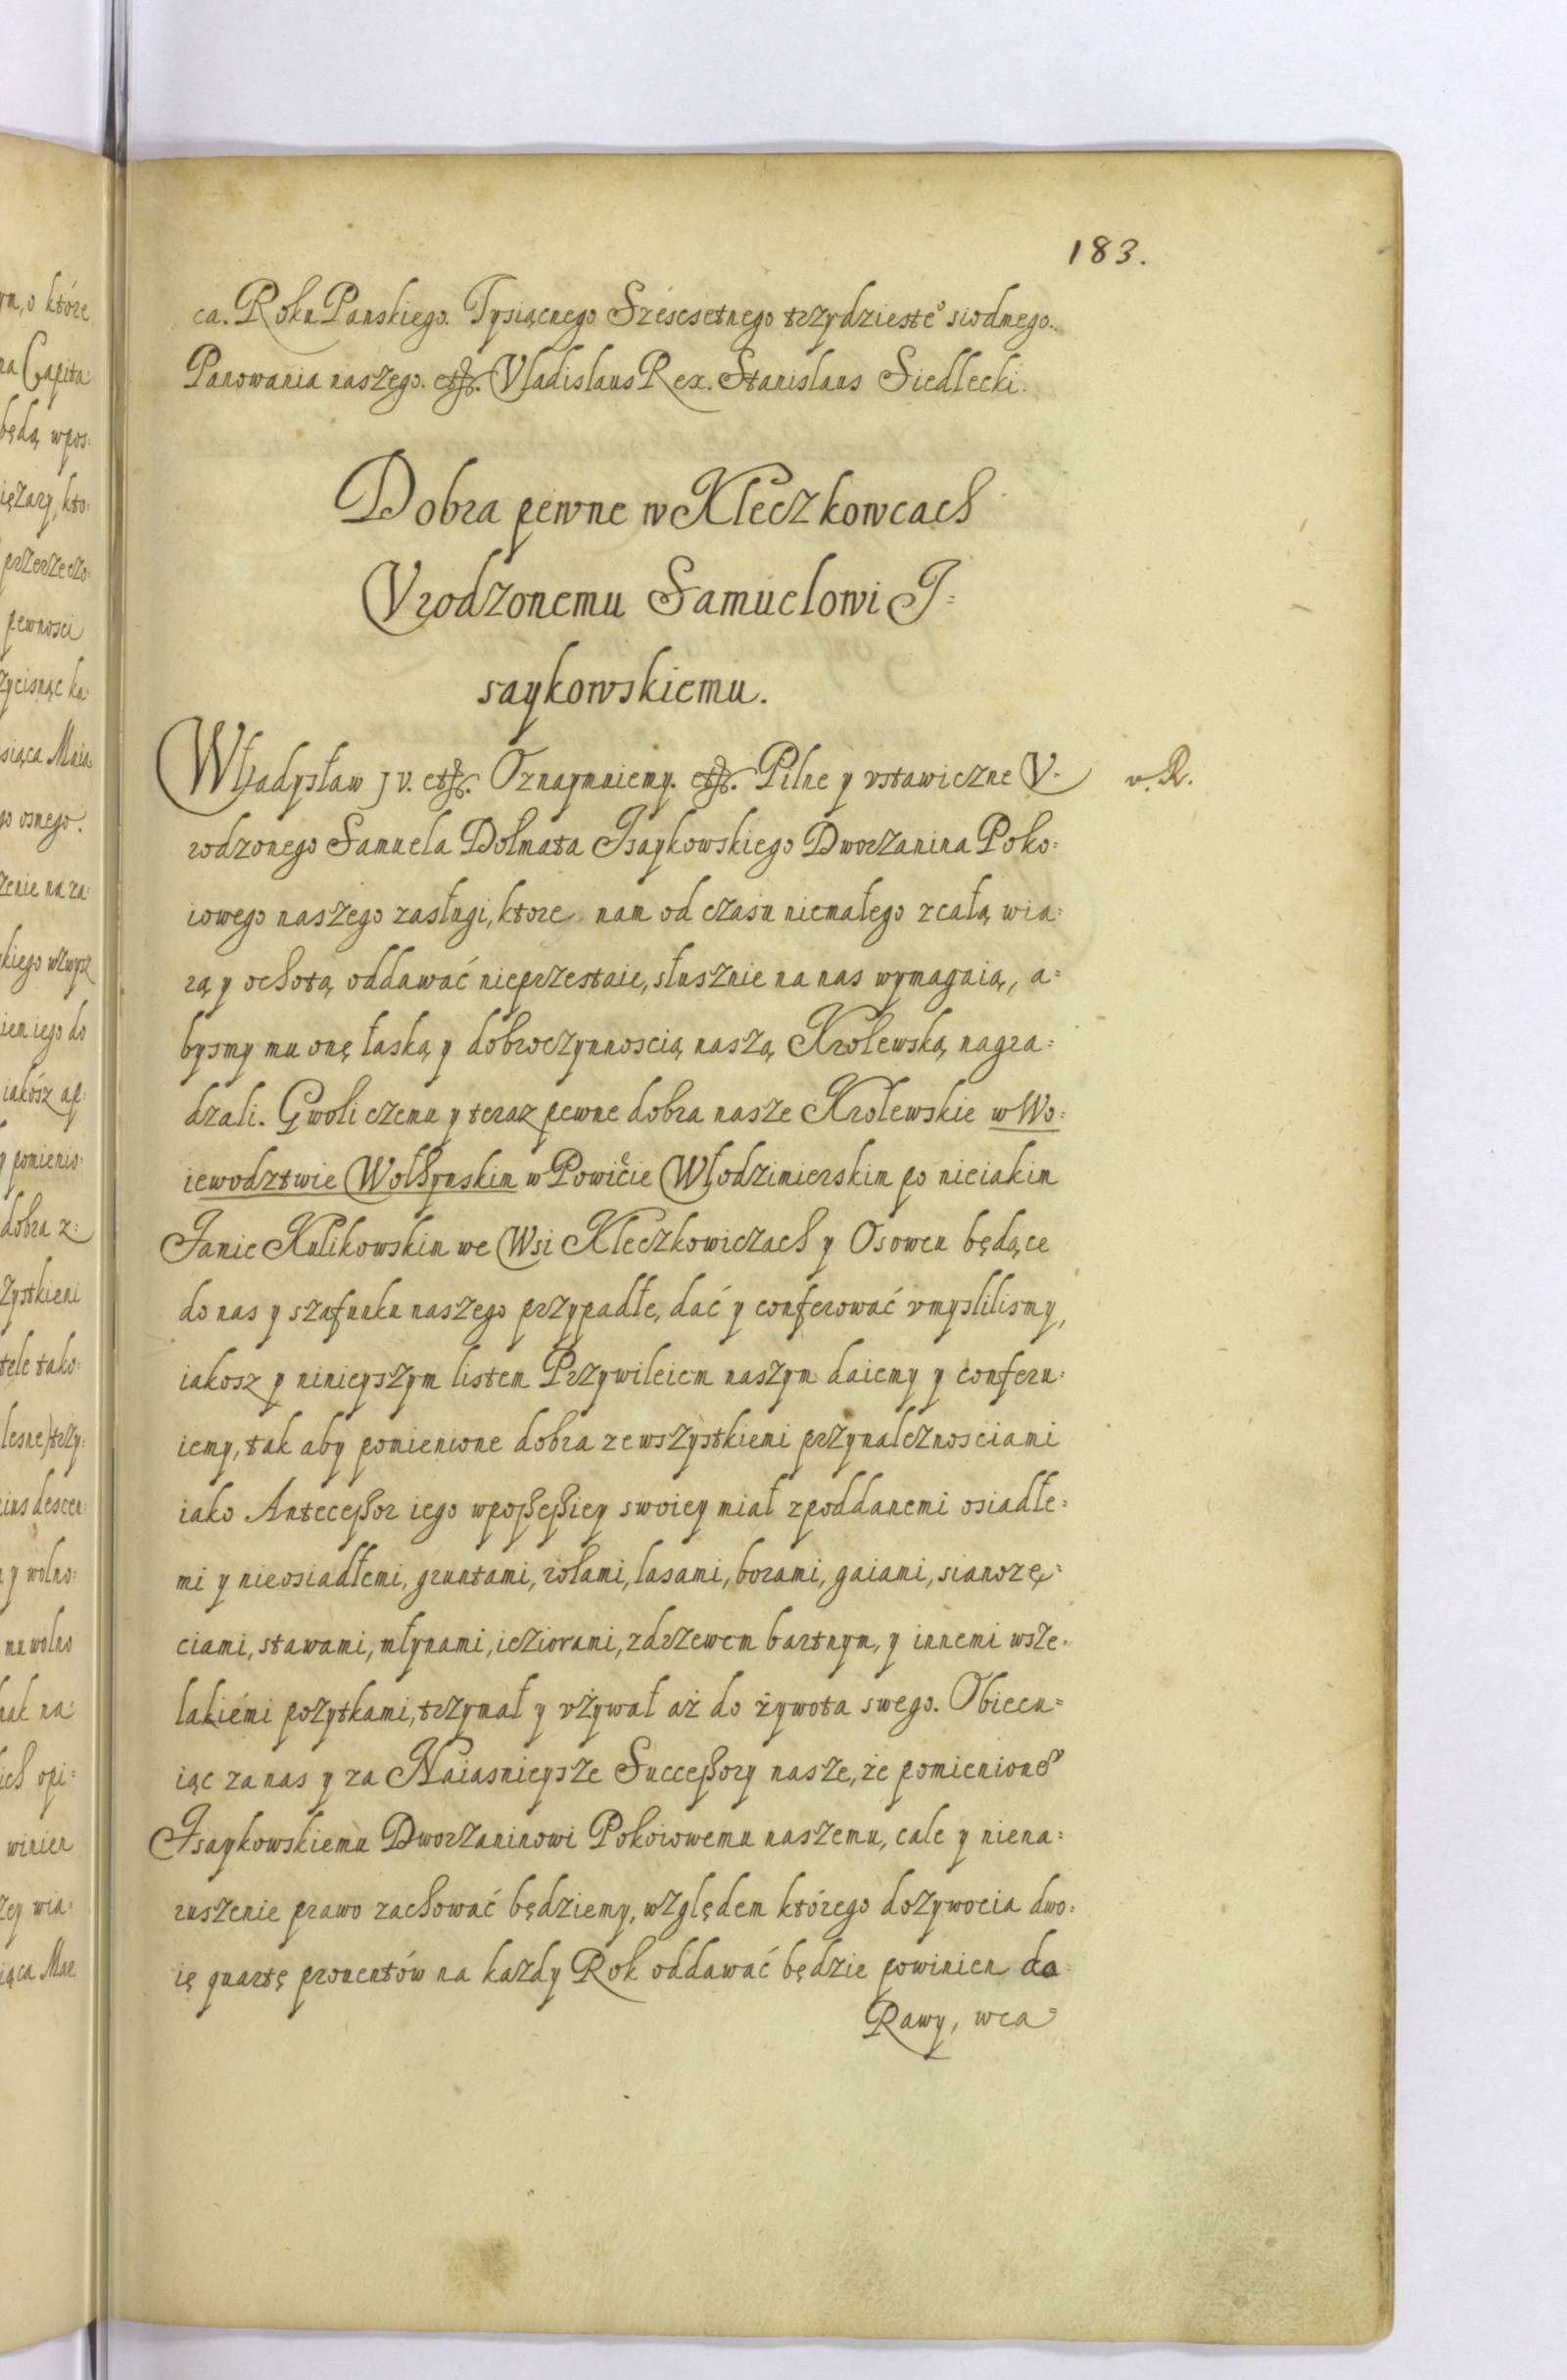 183.
ca. Roku Panskiego. Tysiącnego Szescsetnego trzydziesteº siodmego.
Panowania naszego. etc. Vladislaus Rex. Stanislaus Siedlecki.
Dobra pewne w Kleczkowcach
Vrodzonemu Samuelowi I=
saykowskiemu.
Władysław IV. etc. Oznaymuiemy. etc. Pilne y vstawiczne V-
v. R.
rodzonego Samuela Dołmata Isaykowskiego Dworzanina Poko=
iowego naszego zasługi, ktore nam od czasu niemałego z całą wia=
rą y ochotą oddawać nieprzestaie, słusznie na nas wymagaią, a=
bysmy mu onę łaską y dobroczynnoscią naszą Krolewską nagra=
dzali. Gwoli czemu y teraz pewne dobra nasze Krolewskie w Wo=
iewodztwie Wołhynskim w Powiecie Włodzimierskim po nieiakim
Janie Kulikowskim we Wsi Kleczkowiczach y Osowcu będące
do nas y szafunku naszego przypadłe, dać y conferować vmyslilismy,
iakosz y ninieyszym listem Przywileiem naszym daiemy y conferu=
iemy, tak aby pomienione dobra ze wszystkiemi przynaleznosciami
iako Antecessor iego w possessiey swoiey miał z poddanemi osiadłe=
mi y nieosiadłemi, gruntami, rolami, lasami, borami, gaiami, sianożę=
ciami, stawami, młynami, ieziorami, z drzewem bartnym, y innemi wsze=
lakiemi pozytkami, trzymał y vżywał aż do żywota swego. Obiecu=
iąc za nas y za Naiasnieysze Successory nasze, że pomienioneº
Isaykowskiemu Dworzaninowi Pokoiowemu naszemu, cale y niena=
ruszenie prawo zachować będziemy, względem którego dozywocia dwo=
ię quartę prouentów na kazdy Rok oddawać będzie powinien do
Rawy, wca=